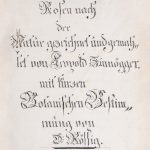 Rosen nach
der
Natur gezeichnet und gemah-
let von
mit kurzen
Botanischen Bestim-
mung von
Rössig.